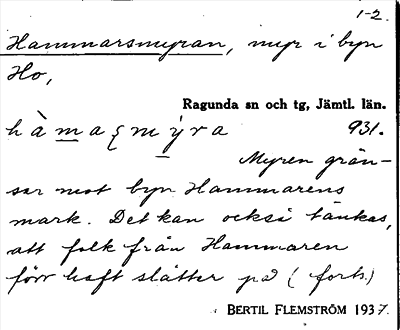 1-2.
Hammarsmyran, myr i byn
Ho,
Ragunda sn och tg, Jämtl. län.
hàmaʒmýra 931.
Myren grän-
sar mot byn Hammarens
mark. Det kan också tänkas,
att folk från Hammaren
förr haft slåtter på (forts.)
BERTIL FLEMSTRÖM 1937.